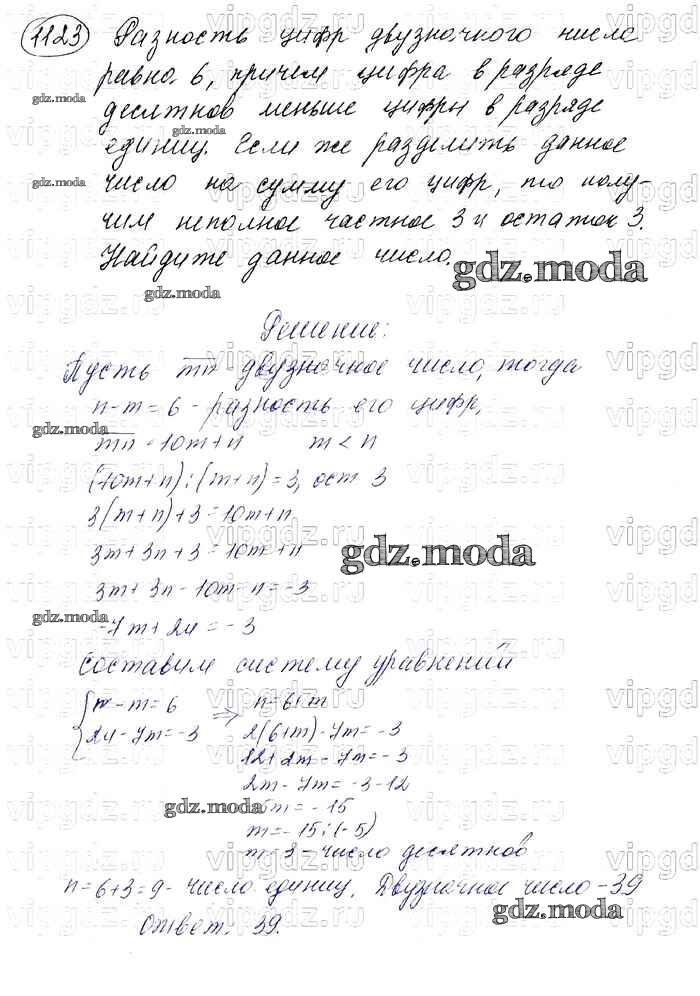 1123 Разность цифр двузначного числа
равно 6, причем цифра в разряде
десятков меньше цифры в разряде
единиц. Если же разделить данное
число на сумму его цифр, то полу-
чим неполное частное 3 и остаток 3.
Найдите данное число.
Решение:
Пусть mn - двузначное число, тогда
n-m=6 - разность его цифр,
mn=10m+n m<n
(10m+n):(m+n)=3, ост 3
3(m+n)+3=10m+n
3m+3n+3=10m+n
3m+3n-10m-n=-3
-7m+2n=-3
Составим систему уравнений
n-m=6 => n=6+m
2n-7m=-3 2(6+m)-7m=-3
12+2m-7m=-3
2m-7m=-3-12
-5m=-15
m=-15:(-5)
m=3-число десятков
n=6+3=9-число единиц. Двузначное число-39
Ответ: 39.
gdz.moda
vipgdz.ru